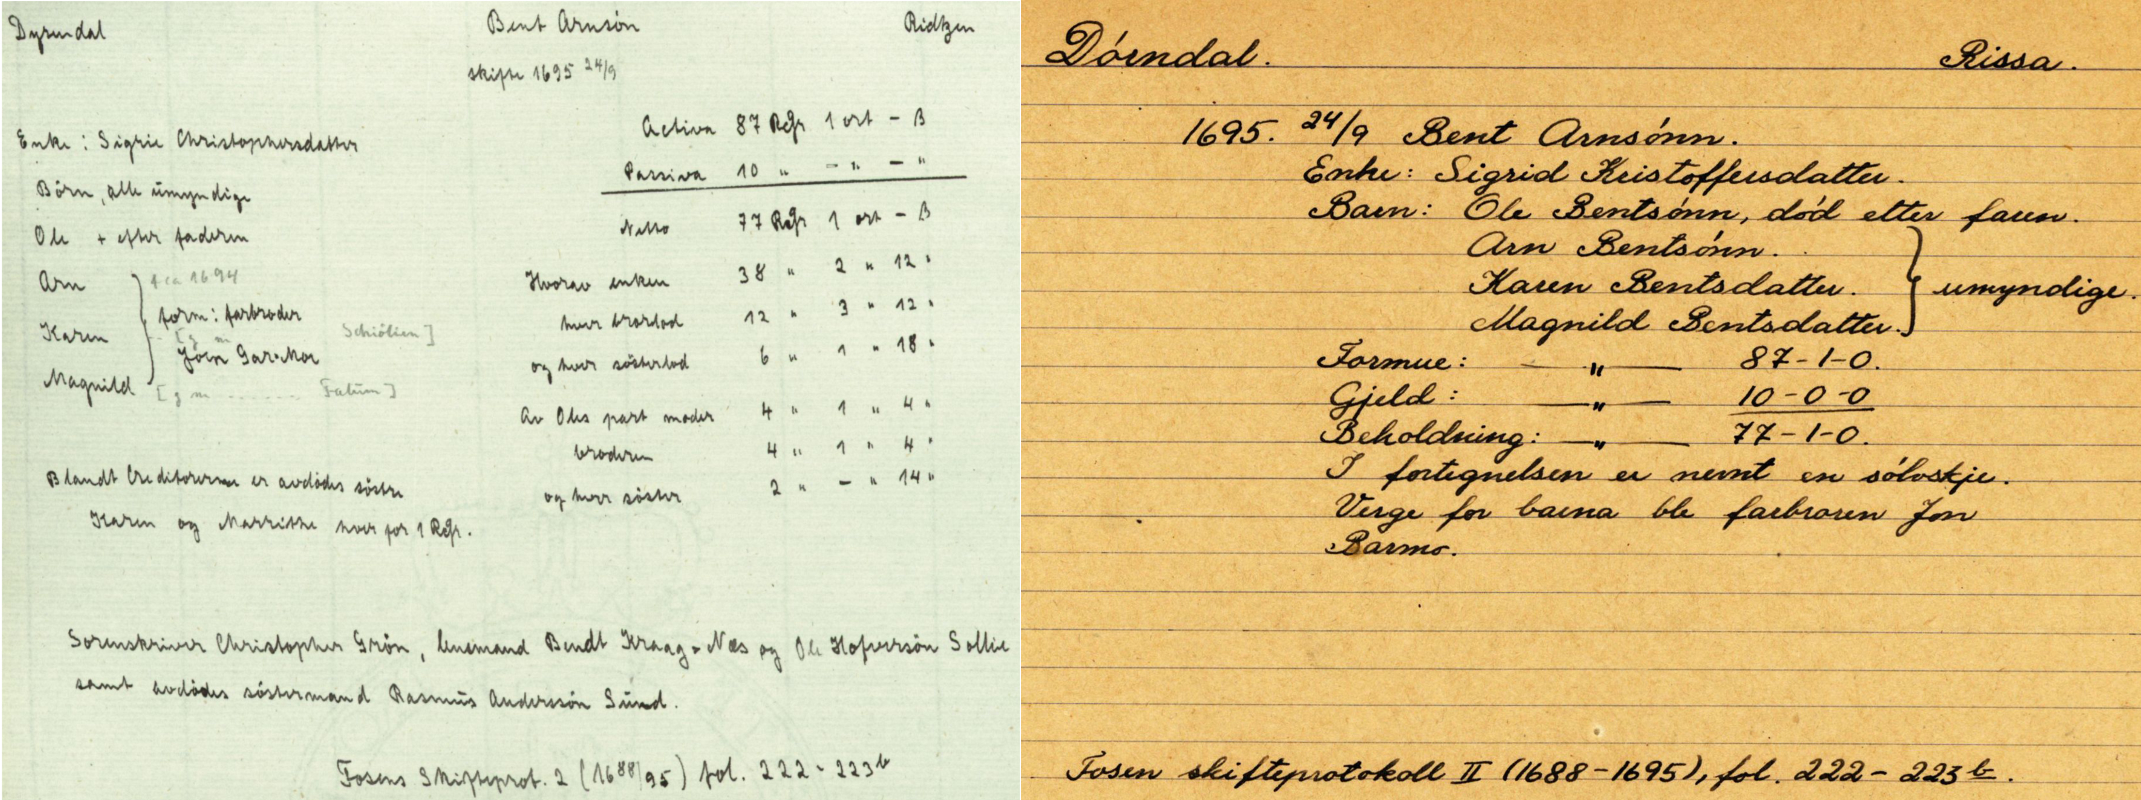 Dyrendal Bent Arnsön Ridtzen
skifte 1695 24/9
Activa 87 Rdlr 1 ort - ß
Passiva 10 " - " - "
Netto 77 Rdlr 1 ort - ß
Hvorav enken 38 " 2 " 12 "
hver brorlod 12 " 3 " 12 "
og hver sösterlod 6 " 1 " 18 "
Av Oles part moder 4 " 1 " 4 "
broderen 4 " 1 " 4 "
og hver söster 2 " - " 14 "
Enke: Sigrie Christophersdatter
Börn, alle ümyndige
Ole + efter faderen
Arn + ca 1694
form: farbroder
Karen [g m Schiölien]
Jörn
Magnild [g m ....... Fallün]
Blandt Creditorerne er avdödes söstre
Karen og Marrithe hver for 1 Rdlr.
Sorenskriver Christopher Grön, lensmand Bendt Kraag - Næs og Ole Hofversön Sollie
samt avdödes söstermand Rasmüs Anderssön Sünd.
Fosens Skifteprot. 2 (1688/95) fol. 222 - 223b
Dórndal. Rissa.
1695. 24/9 Bent Arnsónn.
Enke: Sigrid Kristoffersdatter.
Barn: Ole Bentsónn, dód etter faren.
Arn Bentsónn.
Karen Bentsdatter. } umyndige.
Magnild Bentsdatter.
Formue: — " — 87-1-0.
Gjeld: — " — 10-0-0
Beholdning: — " — 77-1-0.
I fortegnelsen er nevnt en sólvskje.
Verge for barna ble farbroren Jon
Barmo.
Fosen skifteprotokoll II (1688-1695), fol. 222 - 223 b.